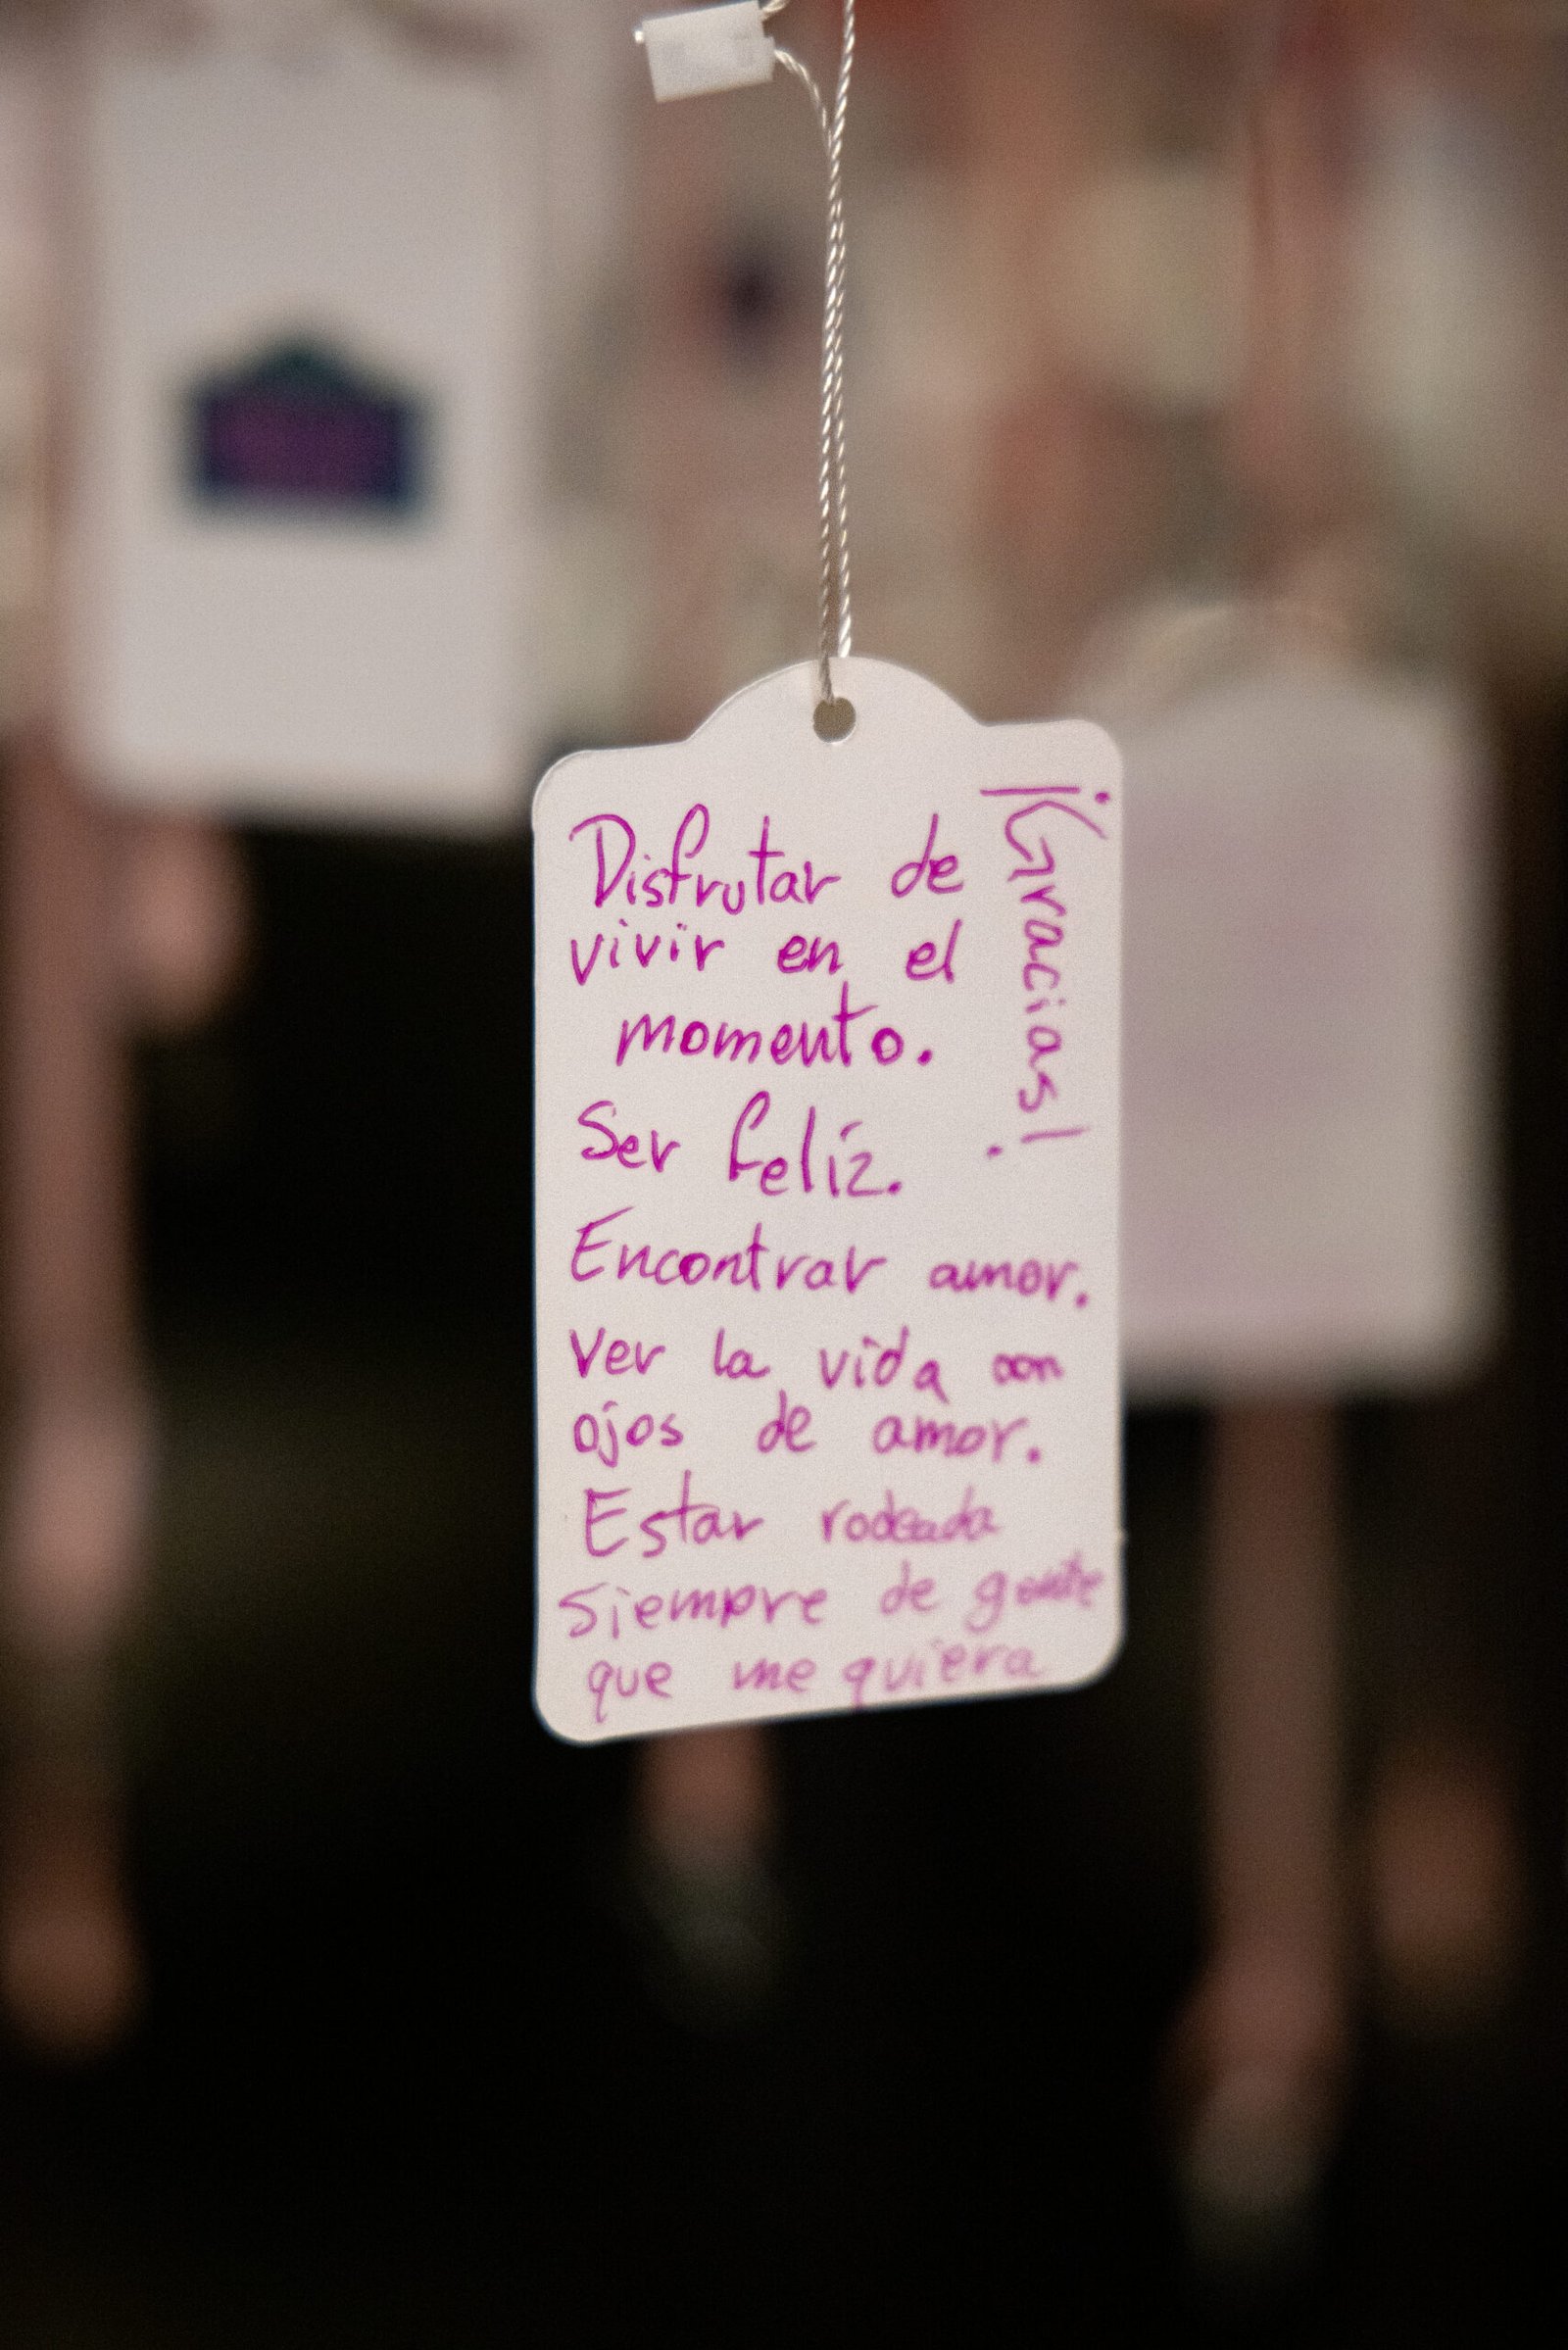 Disfrutar de
vivir en el
momento.
Ser felíz.
Encontrar amor.
Ver la vida con
ojos de amor.
Estar rodeada
siempre de gente
que me quiera
¡Gracias!